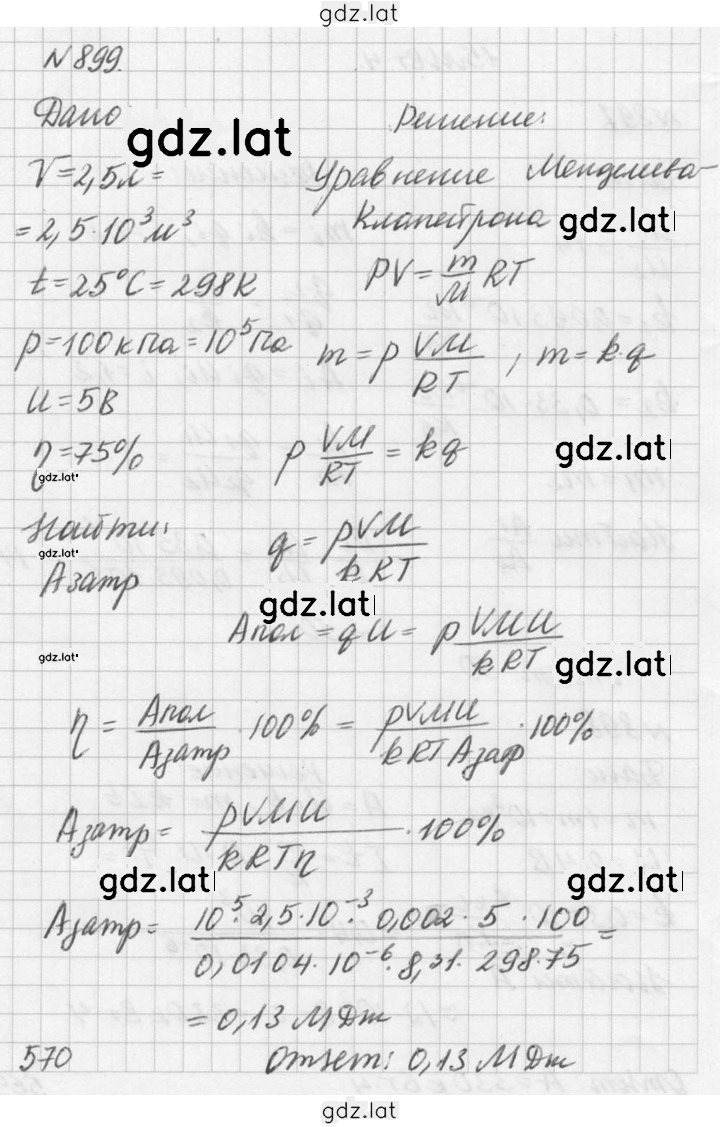 gdz.lat
№899.
Дано
gdz.lat
Решение:
V=2,5л=
=2,5·10³м³
t=25°C=298К
p=100кПа=10⁵Па
U=5В
η=75%
gdz.lat
Найти:
gdz.lat
Азатр
gdz.lat
Уравнение Менделеева-
Клапейрона gdz.lat
PV = m/M RT
m = p VM/RT , m = k·q
p VM/RT = kq gdz.lat
q = pVM/kRT
gdz.lat
Апол = qU = p VMU/kRT gdz.lat
η = Апол/Азатр · 100% = pVMU/kRTАзатр · 100%
Азатр = pVMU/kRTη · 100%
gdz.lat gdz.lat
Азатр = 10⁵·2,5·10⁻³·0,002·5·100/0,0104·10⁻⁶·8,31·298·75 =
= 0,13 МДж
570 Ответ: 0,13 МДж
gdz.lat